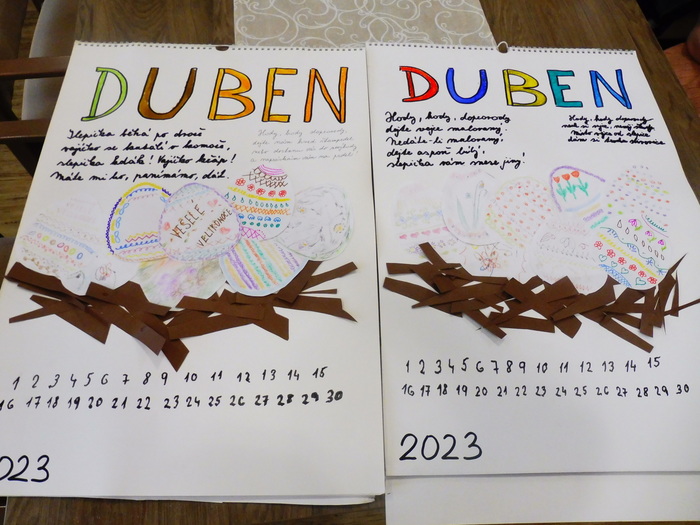 DUBEN
Slepička běhá po dvoře,
vajíčko se kutálí v komoře,
slepička kdáká! Vajíčko křáp!
Máte mi ho, panímámo, dát.
Hody, hody, doprovody,
dejte nám kousek
VESELÉ
VELIKONOCE
1 2 3 4 5 6 7 8 9 10 11 12 13 14 15
16 17 18 19 20 21 22 23 24 25 26 27 28 29 30
2023
DUBEN
Hody, hody, doprovody
dejte vejce malovaný.
Nedáte-li malovaný,
dejte aspoň bílý,
slepička vám snese jiný!
Hody, hody doprovody
1 2 3 4 5 6 7 8 9 10 11 12 13 14 15
16 17 18 19 20 21 22 23 24 25 26 27 28 29 30
2023